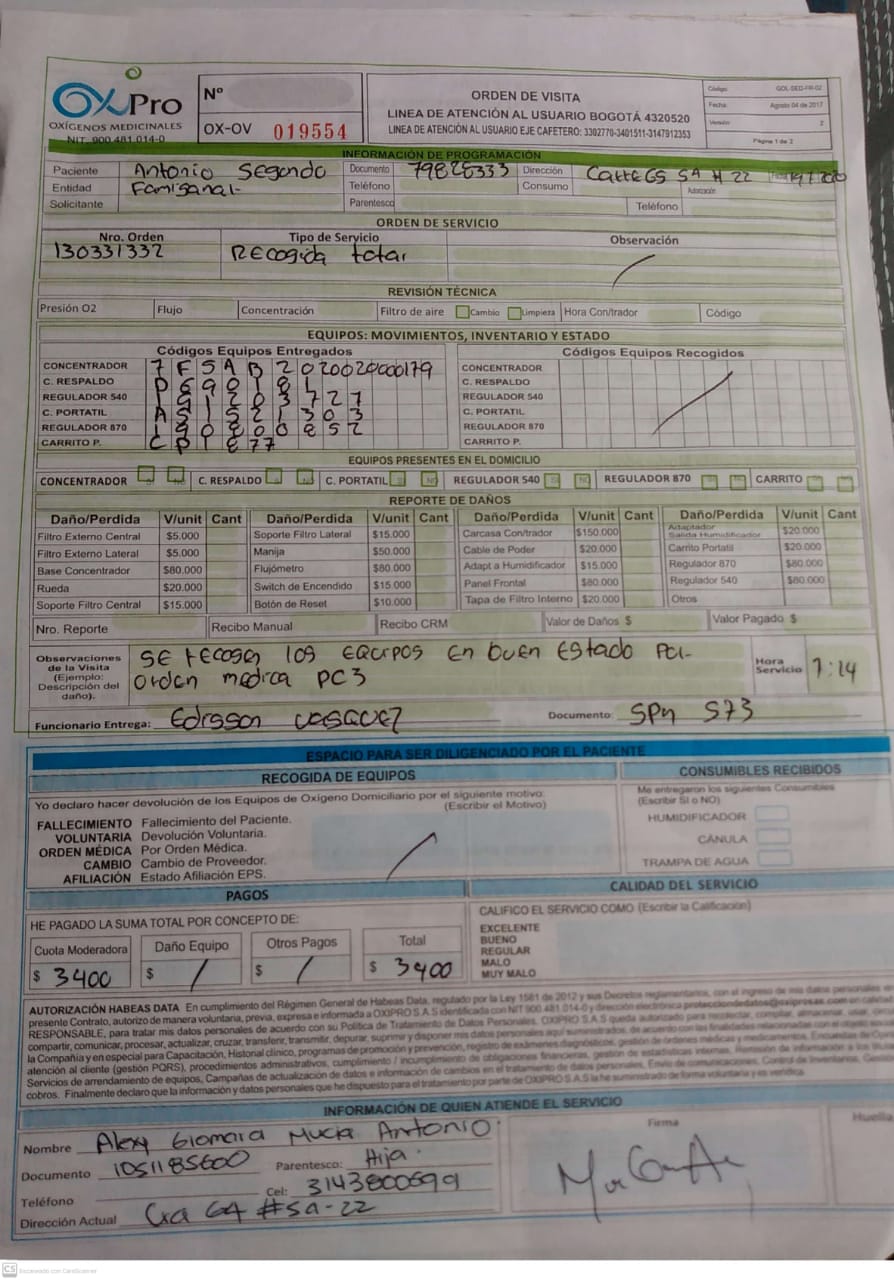 OXPro
OXÍGENOS MEDICINALES
NIT. 900.481.014-0
Nº
OX-OV 019554
ORDEN DE VISITA
LINEA DE ATENCIÓN AL USUARIO BOGOTÁ 4320520
LINEA DE ATENCIÓN AL USUARIO EJE CAFETERO: 3302770-3401511-3147912353
Código: GOL-SED-FR-02
Fecha: Agosto 04 de 2017
Versión: 2
Página 1 de 2
INFORMACIÓN DE PROGRAMACIÓN
Paciente Antonio Segundo Documento 79828333 Dirección
Entidad Famisanar Teléfono Consumo Autorización
Solicitante Parentesco Teléfono
ORDEN DE SERVICIO
Nro. Orden Tipo de Servicio Observación
130331332 RECogida total
REVISIÓN TÉCNICA
Presión O2 Flujo Concentración Filtro de aire Cambio Limpieza Hora Con/trador Código
EQUIPOS: MOVIMIENTOS, INVENTARIO Y ESTADO
Códigos Equipos Entregados Códigos Equipos Recogidos
CONCENTRADOR 7FSAB2020020000179 CONCENTRADOR
C. RESPALDO C. RESPALDO
REGULADOR 540 REGULADOR 540
C. PORTATIL C. PORTATIL
REGULADOR 870 REGULADOR 870
CARRITO P. CARRITO P.
EQUIPOS PRESENTES EN EL DOMICILIO
CONCENTRADOR SI NO C. RESPALDO SI NO C. PORTATIL SI NO REGULADOR 540 SI NO REGULADOR 870 SI NO CARRITO SI NO
REPORTE DE DAÑOS
Daño/Perdida V/unit Cant Daño/Perdida V/unit Cant Daño/Perdida V/unit Cant Daño/Perdida V/unit Cant
Filtro Externo Central $5.000 Soporte Filtro Lateral $15.000 Carcasa Con/trador $150.000 Adaptador Salida Humidificador $20.000
Filtro Externo Lateral $5.000 Manija $50.000 Cable de Poder $20.000 Carrito Portatil $20.000
Base Concentrador $80.000 Flujómetro $80.000 Adapt a Humidificador $15.000 Regulador 870 $80.000
Rueda $20.000 Switch de Encendido $15.000 Panel Frontal $80.000 Regulador 540 $80.000
Soporte Filtro Central $15.000 Botón de Reset $10.000 Tapa de Filtro Interno $20.000 Otros
Nro. Reporte Recibo Manual Recibo CRM Valor de Daños $ Valor Pagado $
Observaciones de la Visita (Ejemplo: Descripción del daño). SE recogen los Equipos En buen Estado por
orden medica PC3
Hora Servicio 7:14
Funcionario Entrega: Edisson vasquez Documento: 573
ESPACIO PARA SER DILIGENCIADO POR EL PACIENTE
RECOGIDA DE EQUIPOS
Yo declaro hacer devolución de los Equipos de Oxígeno Domiciliario por el siguiente motivo:
(Escribir el Motivo)
FALLECIMIENTO Fallecimiento del Paciente.
VOLUNTARIA Devolución Voluntaria.
ORDEN MÉDICA Por Orden Médica.
CAMBIO Cambio de Proveedor.
AFILIACIÓN Estado Afiliación EPS.
CONSUMIBLES RECIBIDOS
Me entregaron los siguientes Consumibles
(Escribir SI o NO)
HUMIDIFICADOR
CÁNULA
TRAMPA DE AGUA
PAGOS
HE PAGADO LA SUMA TOTAL POR CONCEPTO DE:
Cuota Moderadora Daño Equipo Otros Pagos Total
$ 3400 $ $ $ 3400
CALIDAD DEL SERVICIO
CALIFICO EL SERVICIO COMO (Escribir la Calificación)
EXCELENTE
BUENO
REGULAR
MALO
MUY MALO
AUTORIZACIÓN HABEAS DATA En cumplimiento del Régimen General de Habeas Data, regulado por la Ley 1581 de 2012 y sus Decretos reglamentarios, con el ingreso de mis datos personales
presente Contrato, autorizo de manera voluntaria, previa, expresa e informada a OXIPRO S.A.S identificada con NIT 900.481.014-0 y dirección electrónica
RESPONSABLE, para tratar mis datos personales de acuerdo con su Política de Tratamiento de Datos Personales. OXIPRO S.A.S queda autorizado para
compartir, comunicar, procesar, actualizar, cruzar, transferir, transmitir, depurar, suprimir y disponer mis datos personales
la Compañía y en especial para Capacitación, Historial clínico, programas de promoción y prevención, registro de exámenes diagnósticos, gestión de órdenes médicas y medicamentos
atención al cliente (gestión PQRS), procedimientos administrativos, cumplimiento / incumplimiento de obligaciones financieras, gestión de estadísticas internas,
Servicios de arrendamiento de equipos, Campañas de actualización de datos e información de cambios en el tratamiento de datos personales.
cobros. Finalmente declaro que la información y datos personales que he dispuesto para el tratamiento por parte de OXIPRO S.A.S la he suministrado de forma voluntaria y es verídica
INFORMACIÓN DE QUIEN ATIENDE EL SERVICIO
Nombre Alexy Giomara Mucia Antonio Firma Huella
Documento 1051185600 Parentesco: Hija
Teléfono Cel: 3143800599
Dirección Actual Cra 64 #5a-22
CS Escaneado con CamScanner